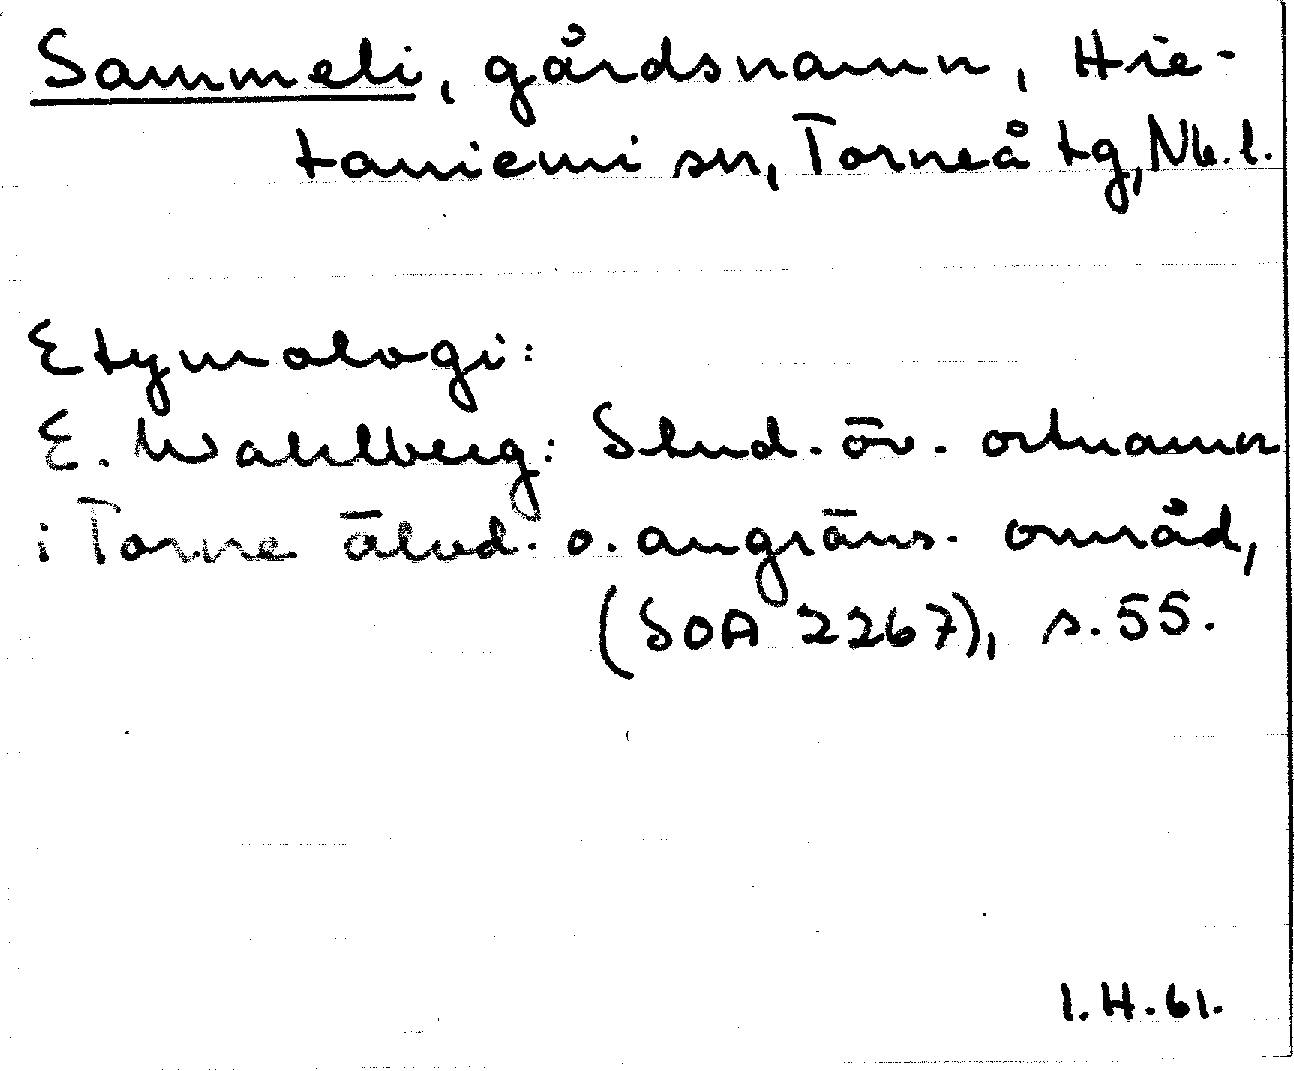 Sammeli, gårdsnamn, Hie-
taniemi sn, Torneå tg, Nb. l.
Etymologi:
E. Wahlberg: Stud. öv. ortnamn
i Torne älvd. o. angräns. områd,
(SOA 2267), s. 55.
I. H. 61.